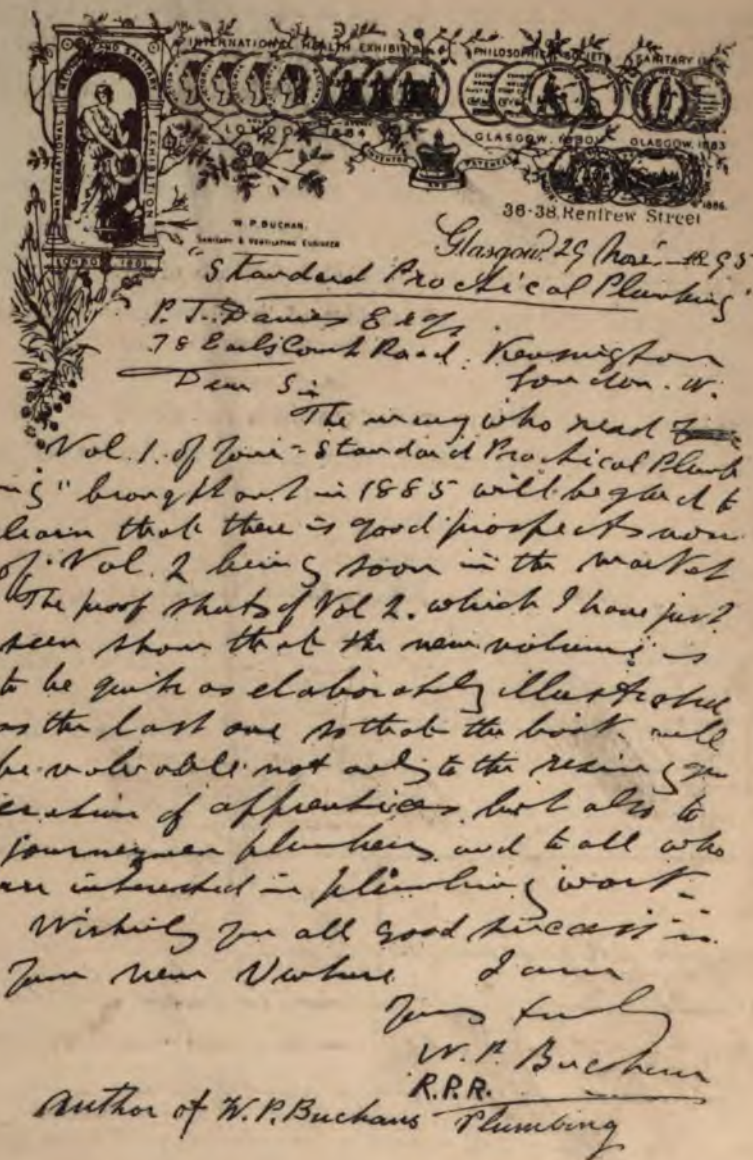 INTERNATIONAL HEALTH EXHIBITION
PHILOSOPHICAL SOCIETY
SANITARY
INTERNATIONAL MEDICAL AND SANITARY EXHIBITION
LONDON 1881
LONDON 1884
GLASGOW, 1880
GLASGOW, 1883
INVENTOR AND PATENTEE
1886
36-38, Renfrew Street
W. P. BUCHAN,
SANITARY & VENTILATING ENGINEER
Glasgow, 29 Novr 1895
"Standard Practical Plumbing"
P. J. Davies Esqr.
78 Earls Court Road. Kensington
Dear Sir London. W.
The many who read
Vol. 1. of your "Standard Practical Plumb
ing" brought out in 1885 will be glad to
learn that there is good prospects now
of Vol. 2 being soon in the market
The proof sheets of Vol 2. which I have just
seen show that the new volume is
to be quite as elaborately illustrated
as the last one so that the book will
be valuable not only to the rising gen
eration of apprentices but also to
journeymen plumbers and to all who
are interested in plumbing work.
Wishing you all good success in
your new Venture I am
Yours truly
W. P. Buchan
R.P.R.
Author of W. P. Buchans Plumbing